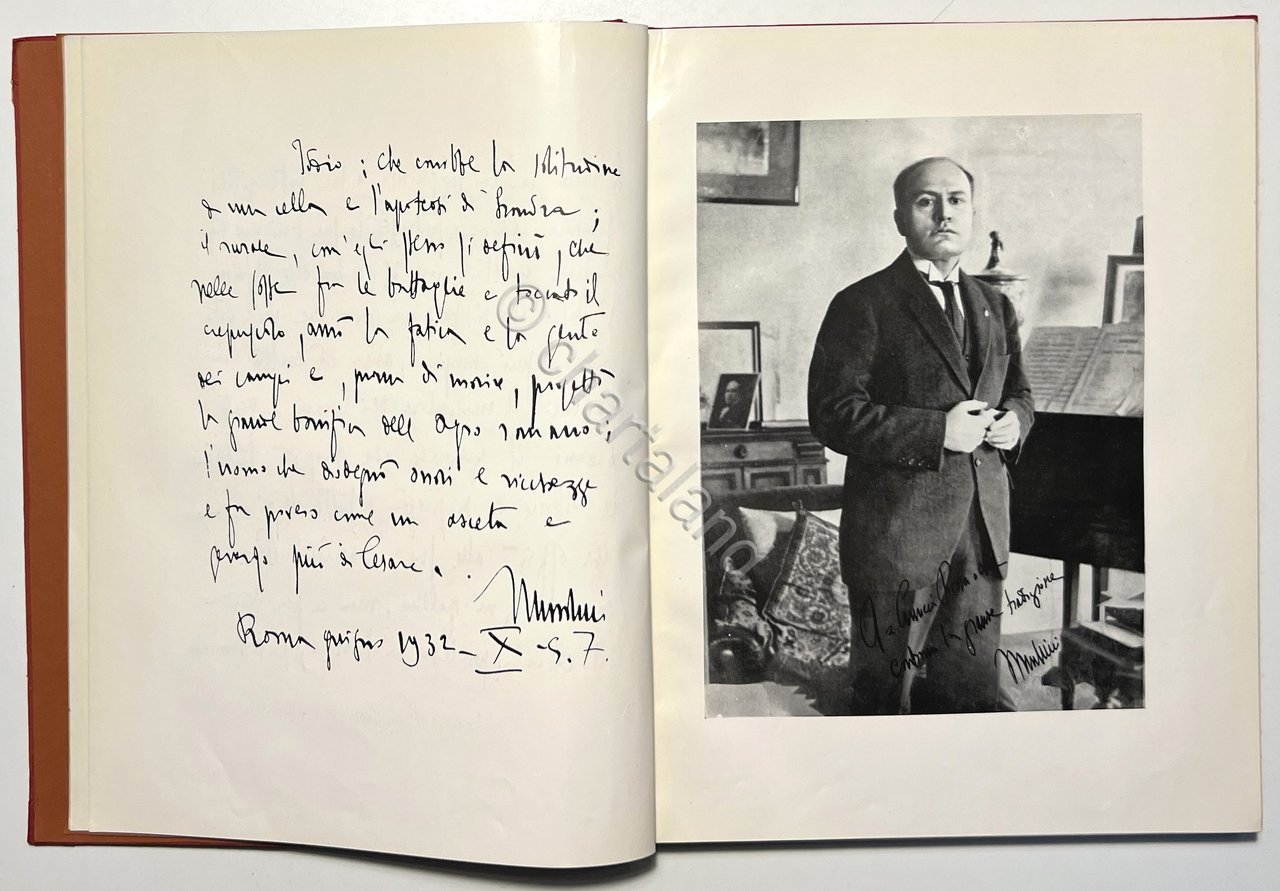 che conobbe la solitudine
d'una cella e l'apoteosi di Londra;
il rurale, com'egli stesso si definì, che
nelle soste fra le battaglie e toccato il
crepuscolo, amò la fatica e la gente
dei campi e, prima di morire, progettò
la grande bonifica dell'agro romano;
l'uomo che disdegnò onori e ricchezze
e fu povero come un asceta e
prode più di Cesare.
Mussolini
Roma giugno 1932 - X - S. 7.
la grande tradizione
Mussolini
© chartaland